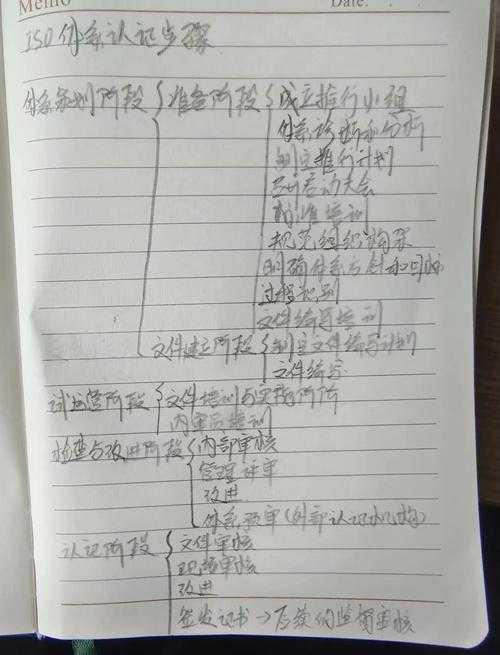 Memo Date:
ISO体系认证步骤
体系策划阶段 准备阶段 成立推行小组
体系诊断和分析
制定推行计划
召开启动大会
标准培训
规范组织构架
明确体系方针和目标
过程识别
文件编写培训
文件建立阶段 制定文件编写计划
文件编写
试运营阶段 文件培训与实施阶段
内审员培训
检查与改进阶段 内部审核
管理评审
改进
体系预审(外部认证机构)
认证阶段 文件审核
现场审核
改进
签发证书→后续的监督审核